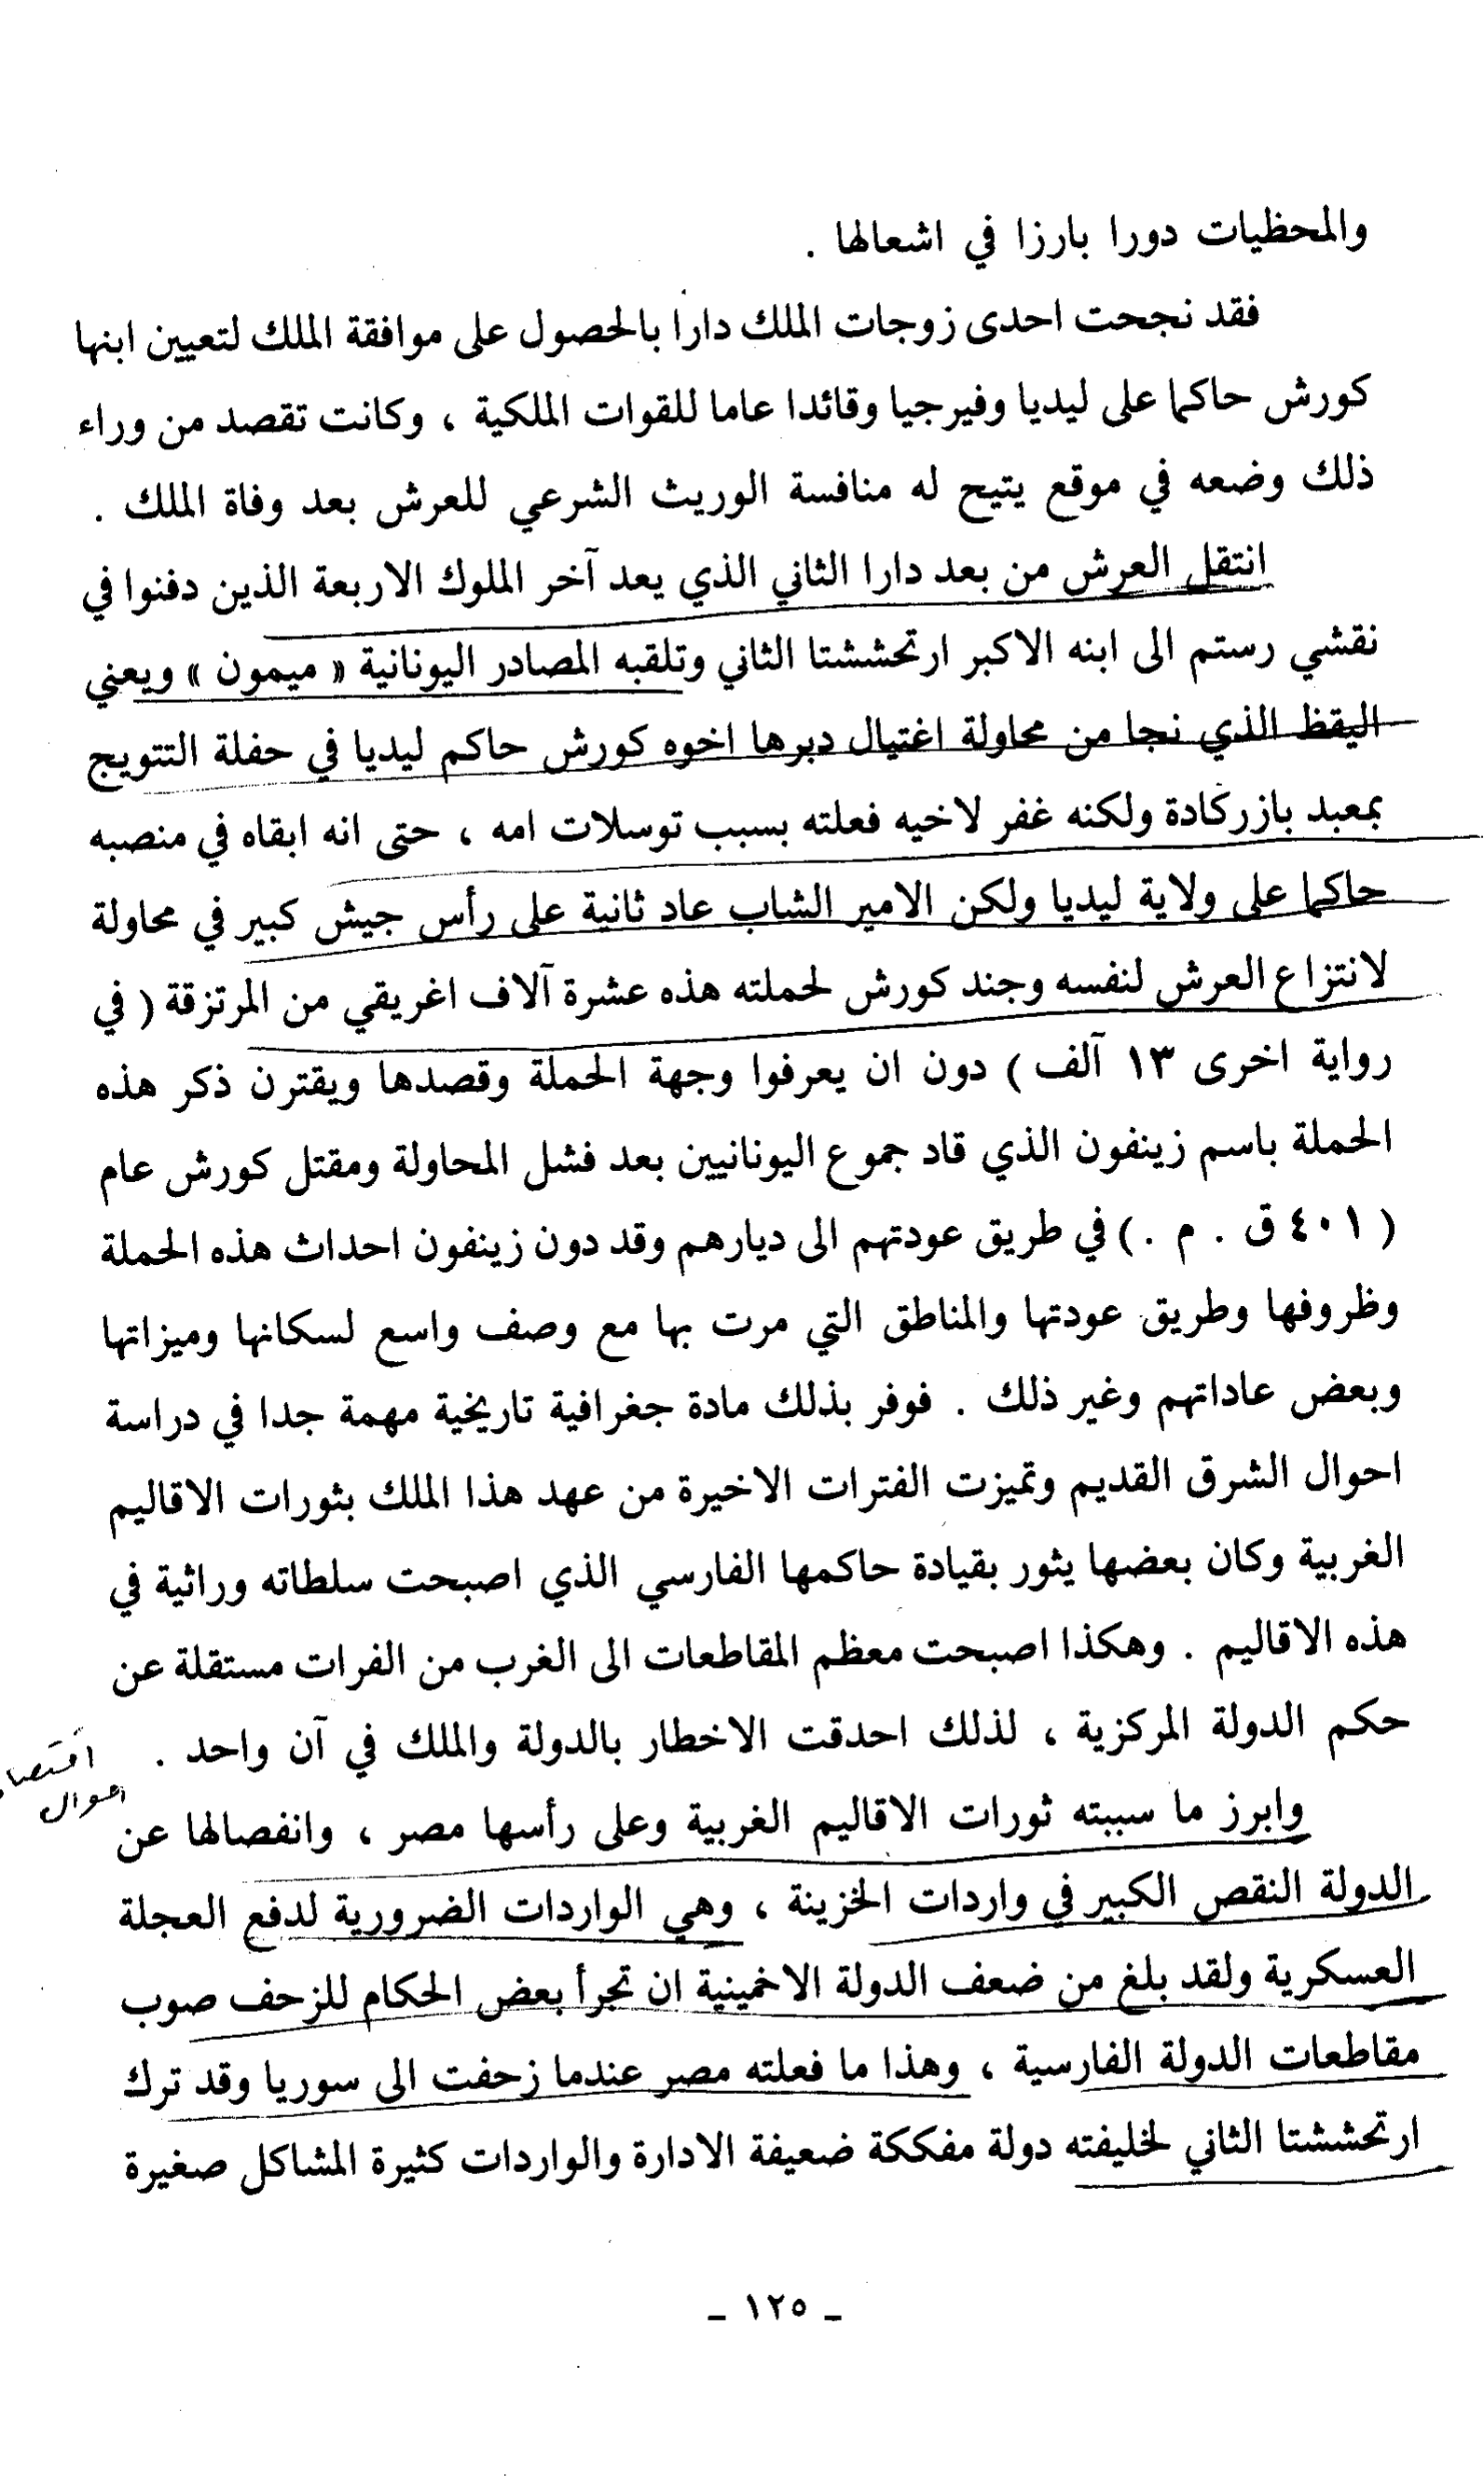 والمحظيات دورا بارزا في اشعالها .
فقد نجحت احدى زوجات الملك دارا بالحصول على موافقة الملك لتعيين ابنها
كورش حاكما على ليديا وفيرجيا وقائدا عاما للقوات الملكية ، وكانت تقصد من وراء
ذلك وضعه في موقع يتيح له منافسة الوريث الشرعي للعرش بعد وفاة الملك .
انتقل العرش من بعد دارا الثاني الذي يعد آخر الملوك الاربعة الذين دفنوا في
نقشي رستم الى ابنه الاكبر ارتحششتا الثاني وتلقبه المصادر اليونانية « ميمون » ويعني
اليقظ الذي نجا من محاولة اغتيال دبرها اخوه كورش حاكم ليديا في حفلة التتويج
بمعبد بازركادة ولكنه غفر لاخيه فعلته بسبب توسلات امه ، حتى انه ابقاه في منصبه
حاكما على ولاية ليديا ولكن الامير الشاب عاد ثانية على رأس جيش كبير في محاولة
لانتزاع العرش لنفسه وجند كورش لحملته هذه عشرة آلاف اغريقي من المرتزقة ( في
رواية اخرى ١٣ آلف ) دون ان يعرفوا وجهة الحملة وقصدها ويقترن ذكر هذه
الحملة باسم زينفون الذي قاد جموع اليونانيين بعد فشل المحاولة ومقتل كورش عام
( ٤٠١ ق . م . ) في طريق عودتهم الى ديارهم وقد دون زينفون احداث هذه الحملة
وظروفها وطريق عودتها والمناطق التي مرت بها مع وصف واسع لسكانها وميزاتها
وبعض عاداتهم وغير ذلك . فوفر بذلك مادة جغرافية تاريخية مهمة جدا في دراسة
احوال الشرق القديم وتميزت الفترات الاخيرة من عهد هذا الملك بثورات الاقاليم
الغربية وكان بعضها يثور بقيادة حاكمها الفارسي الذي اصبحت سلطاته وراثية في
هذه الاقاليم . وهكذا اصبحت معظم المقاطعات الى الغرب من الفرات مستقلة عن
حكم الدولة المركزية ، لذلك احدقت الاخطار بالدولة والملك في آن واحد .
وابرز ما سببته ثورات الاقاليم الغربية وعلى رأسها مصر ، وانفصالها عن
الدولة النقص الكبير في واردات الخزينة ، وهي الواردات الضرورية لدفع العجلة
العسكرية ولقد بلغ من ضعف الدولة الاخمينية ان تجرأ بعض الحكام للزحف صوب
مقاطعات الدولة الفارسية ، وهذا ما فعلته مصر عندما زحفت الى سوريا وقد ترك
ارتحششتا الثاني لخليفته دولة مفككة ضعيفة الادارة والواردات كثيرة المشاكل صغيرة
ـ ١٢٥ ـ